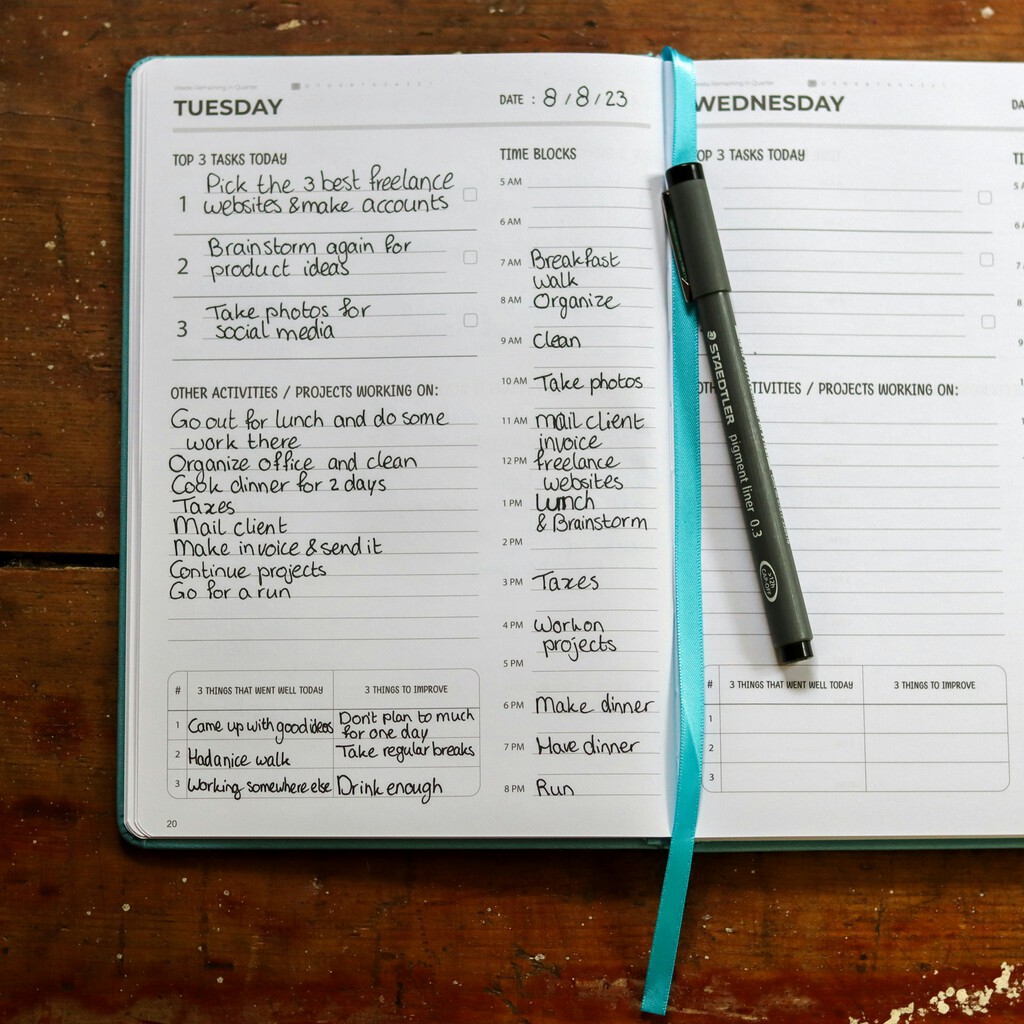 Weeks Remaining in Quarter
TUESDAY
DATE : 8 / 8 / 23
TOP 3 TASKS TODAY
1 Pick the 3 best freelance
websites & make accounts
2 Brainstorm again for
product ideas
3 Take photos for
social media
OTHER ACTIVITIES / PROJECTS WORKING ON:
Go out for lunch and do some
work there
Organize office and clean
Cook dinner for 2 days
Taxes
Mail client
Make invoice & send it
Continue projects
Go for a run
# 3 THINGS THAT WENT WELL TODAY 3 THINGS TO IMPROVE
1 Came up with good ideas Don't plan to much
for one day
2 Had a nice walk Take regular breaks
3 Working somewhere else Drink enough
20
TIME BLOCKS
5 AM
6 AM
7 AM Breakfast
walk
8 AM Organize
9 AM Clean
10 AM Take photos
11 AM Mail client
invoice
12 PM freelance
websites
1 PM Lunch
& Brainstorm
2 PM
3 PM Taxes
4 PM Work on
projects
5 PM
6 PM Make dinner
7 PM Have dinner
8 PM Run
STAEDTLER pigment liner 0.3
Weeks Remaining in Quarter
WEDNESDAY
DA
OP 3 TASKS TODAY
TI
5 A
6
7
8
9
OTH TIVITIES / PROJECTS WORKING ON:
# 3 THINGS THAT WENT WELL TODAY 3 THINGS TO IMPROVE
1
2
3